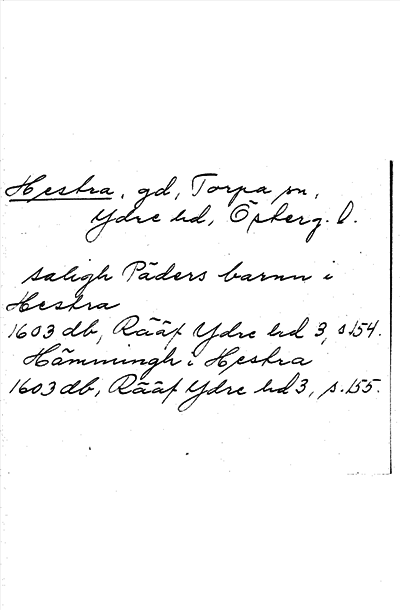 Hestra, gd, Torpa sn,
Ydre hd, Östergötl.
saligh Päders barnn i
Hestra
1603 db, Rääf Ydre hd 3, s. 154.
Hämmingh i Hestra
1603 db, Rääf Ydre hd 3, s. 155.